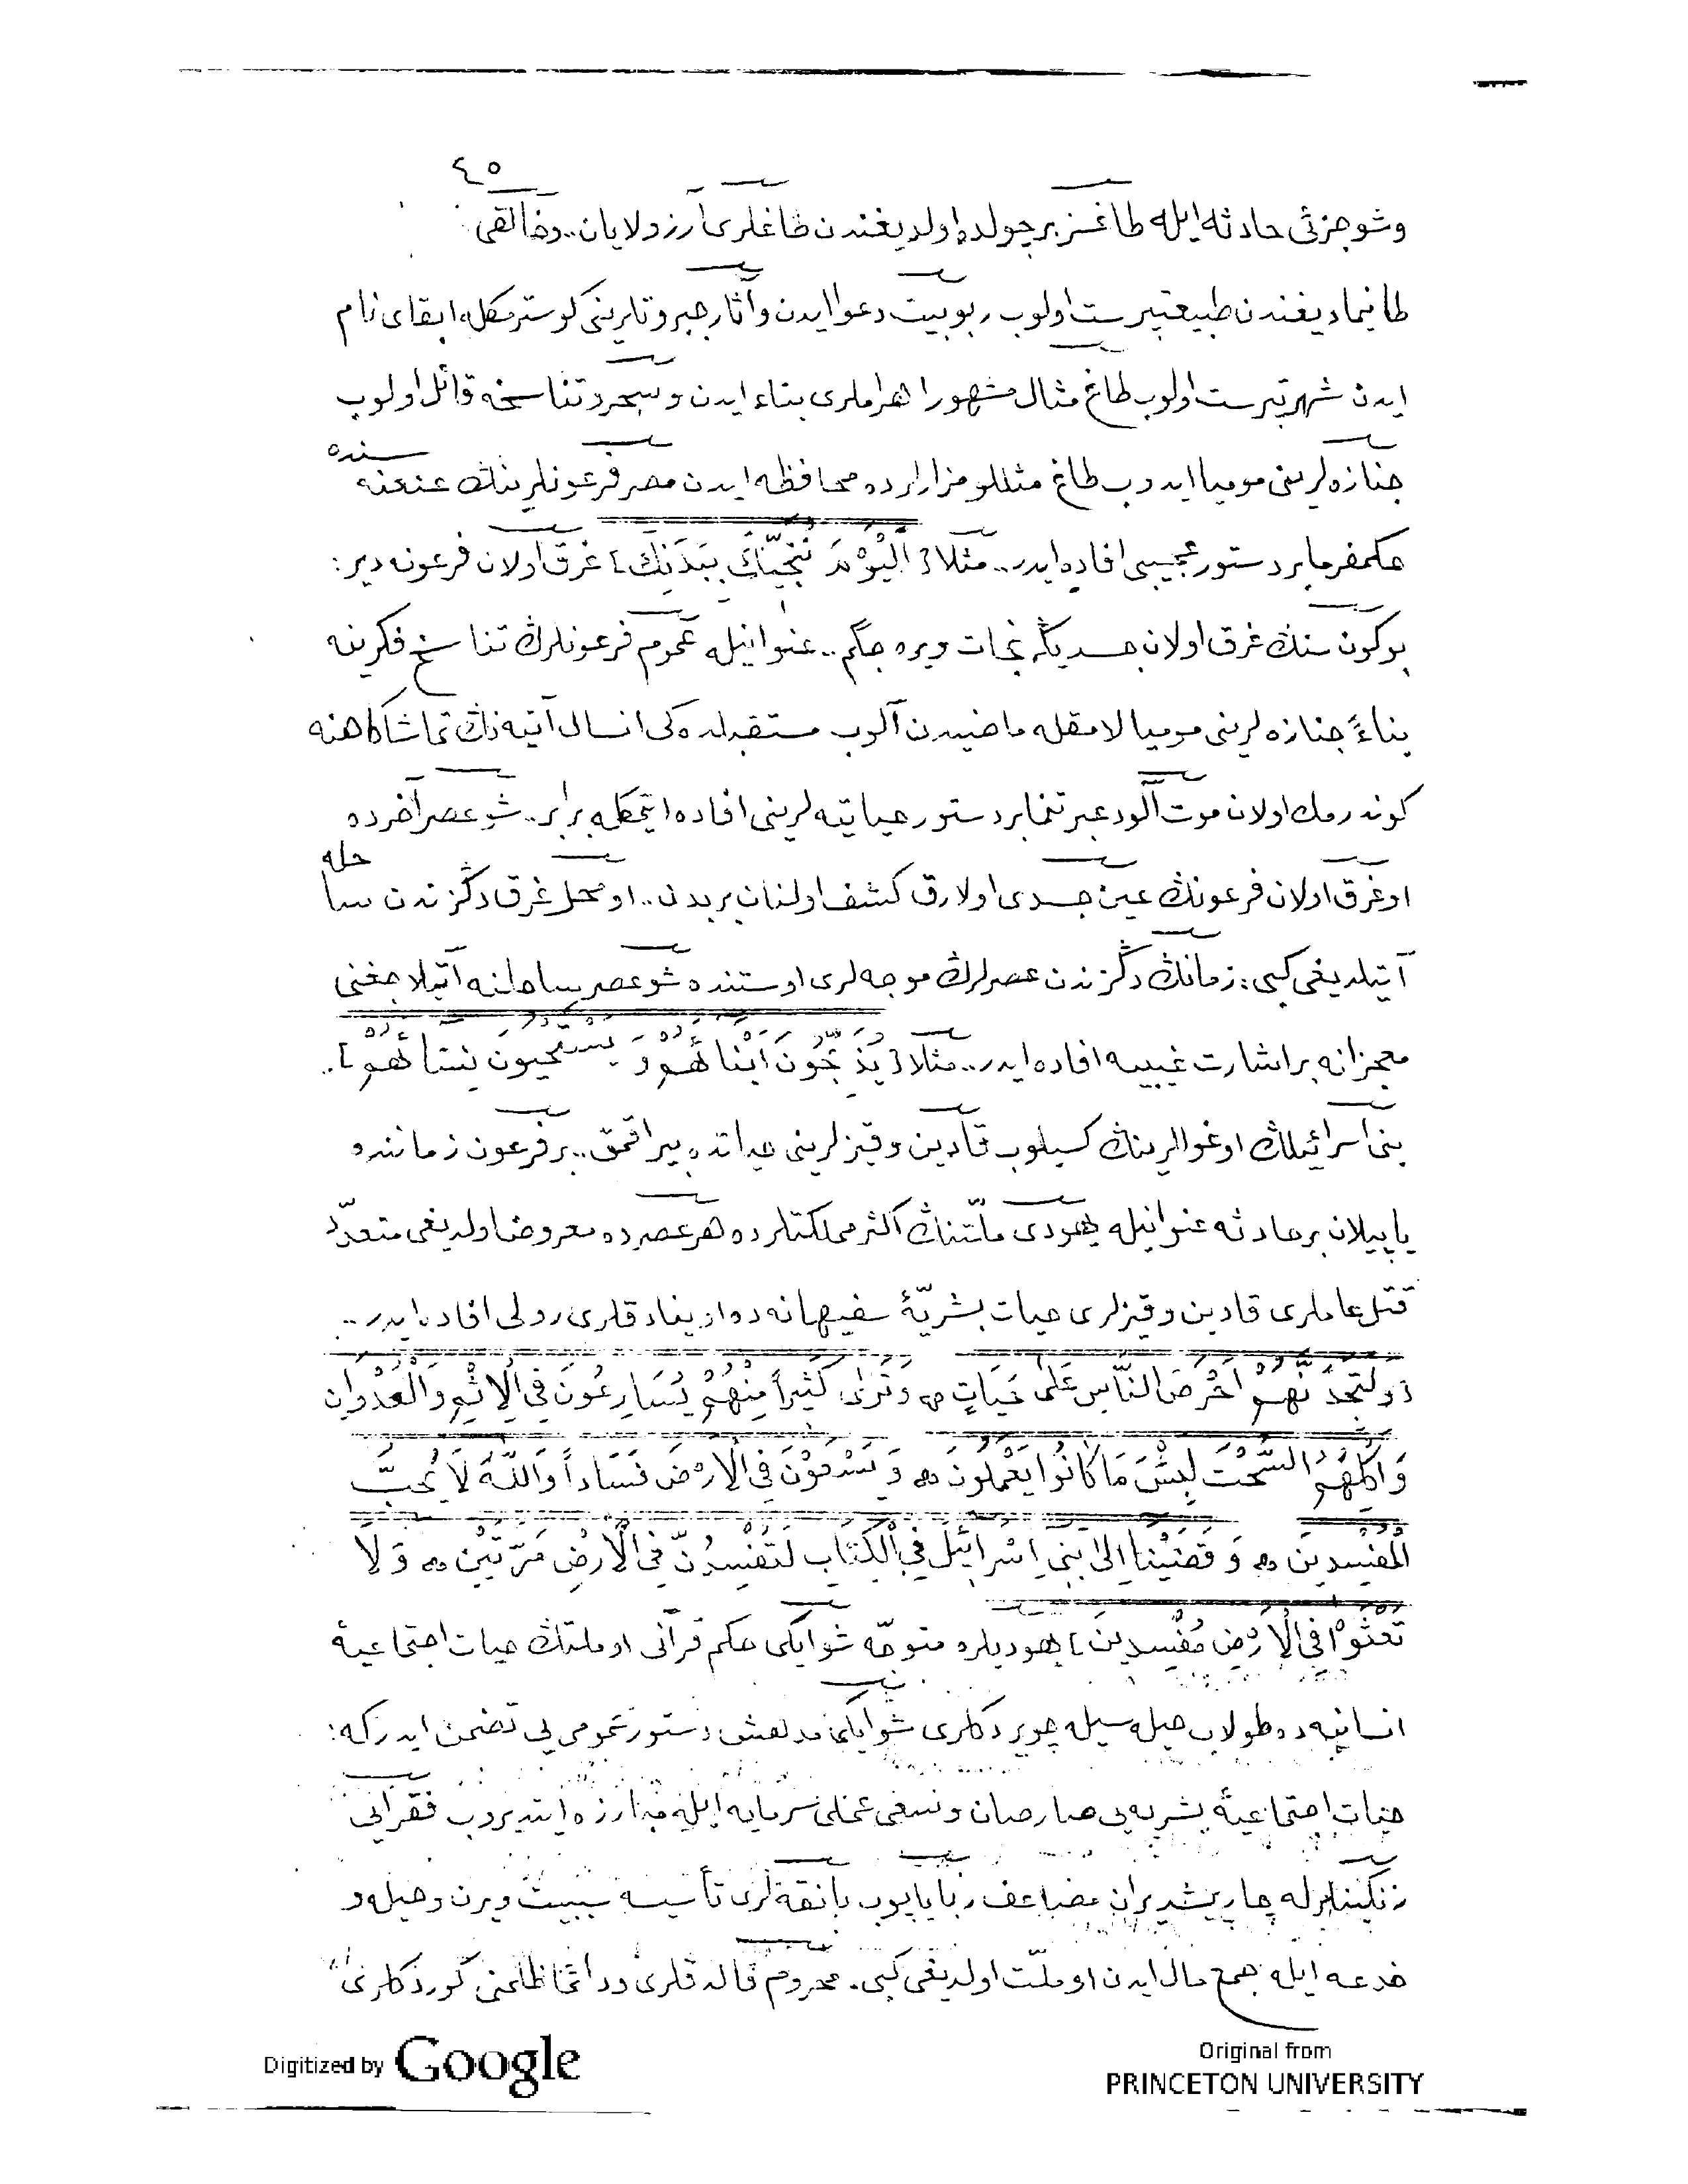 ٤٥
وشو جزئی حادثه ایله طاغسز بر چولده اولدیغندن طاغلری آرزولایان.. وخالقی
طانیمادیغندن طبیعتپرست اولوب ربوبیت دعوا ایدن وآثار جبروتلرینی کوسترمکله ابقای نام
ایدن شهرتپرست اولوب طاغ مثال مشهور اهراملری بناء ایدن وسحر وتناسخه قائل اولوب
جنازه لرینی مومیا ایدوب طاغ مثللو مزارلرده محافظه ایدن مصر فرعونلرینڭ عنعنه سنده
حکمفرما بر دستور عجیبی افاده ایدر.. مثلا [ اَلْيَوْمَ نُنَجِّيكَ بِبَدَنِكَ ] غرق اولان فرعونه دیر:
بوکون سنڭ غرق اولان جسدیڭه نجات ویره جگم.. عنوانیله عموم فرعونلرڭ تناسخ فکرینه
بناءً جنازه لرینی مومیالامقله ماضیدن آلوب مستقبلده کی انسال آتیه نڭ تماشاکاهنه
کوندرمك اولان موت آلود عبرتنما بر دستور حیاتیه لرینی افاده ایتمکله برابر.. شو عصر آخرده
او غرق اولان فرعونڭ عین جسدی اولارق کشف اولنان بر بدن.. او محل غرق دڭزندن ساحله
آتیلدیغی کبی: زمانڭ دڭزندن عصرلرڭ موجه لری اوستنده شو عصر ساحلنه آتیلاجغنی
معجزانه بر اشارت غیبیه افاده ایدر.. مثلا [ يُذَبِّحُونَ اَبْنَاءَهُمْ وَ يَسْتَحْيُونَ نِسَاءَهُمْ ]..
بنی اسرائیلڭ اوغوللرینڭ کسیلوب قادین وقیزلرینی حیاتده بیراقمق.. بر فرعون زماننده
یاپیلان بر حادثه عنوانیله یهودی ملتنڭ اکثر مملکتلرده هر عصرده معروض اولدیغی متعدّد
قتل عاملری قادین وقیزلری حیات بشریّۀ سفیهانه ده اوینادقلری رولی افاده ایدر..
[ وَلَتَجِدَنَّهُمْ اَحْرَصَ النَّاسِ عَلٰى حَيَاتٍ ۞ وَتَرٰى كَثِيرًا مِنْهُمْ يُسَارِعُونَ فِي الْاِثْمِ وَالْعُدْوَانِ
وَاَكْلِهِمُ السُّحْتَ لَبِئْسَ مَا كَانُوا يَعْمَلُونَ ۞ وَيَسْعَوْنَ فِي الْاَرْضِ فَسَادًا وَاللّٰهُ لَا يُحِبُّ
الْمُفْسِدِينَ ۞ وَقَضَيْنَا اِلٰى بَنِي اِسْرَائِيلَ فِي الْكِتَابِ لَتُفْسِدُنَّ فِي الْاَرْضِ مَرَّتَيْنِ ۞ وَلَا
تَعْثَوْا فِي الْاَرْضِ مُفْسِدِينَ ] یهودیلره متوجّه شو ایکی حکم قرآنی او ملتڭ حیات اجتماعیۀ
انسانیه ده طولاب حیله سیله چویردکلری شو ایکی مدهش دستور عمومی یی تضمن ایدرکه:
حیات اجتماعیۀ بشریه یی صارصان وسعی عملی سرمایه ایله مبارزه ایتدیروب فقرایی
زنکینلرله چارپیشدیران مضاعف ربا یاپوب بانقه لری تأسیسه سببیت ویرن وحیله و
خدعه ایله جمع مال ایدن او ملّت اولدیغی کبی. محروم قالدقلری ودائما ظلمنی کوردکلری
Digitized by Google
Original from
PRINCETON UNIVERSITY